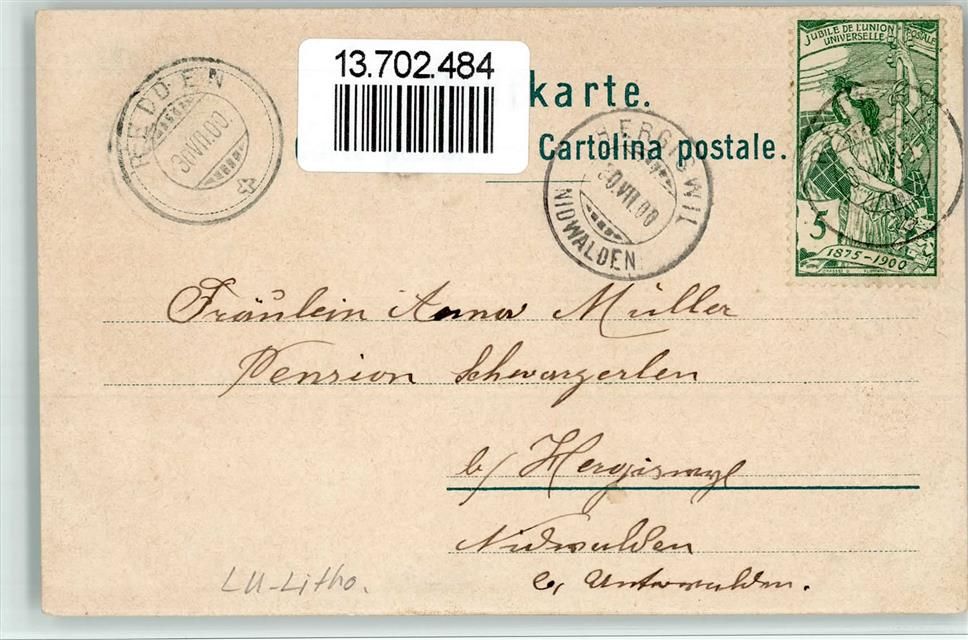 13.702.484
karte.
Cartolina postale.
REIDEN
30 VII.00.
HERGISWIL
30.VII.00
NIDWALDEN
JUBILÉ DE L'UNION POSTALE
UNIVERSELLE
5
1875-1900
Fräulein Anna Müller
Pension Schwarzerlen
b/ Hergiswyl
Nidwalden
Unterwalden.
LU-Litho.